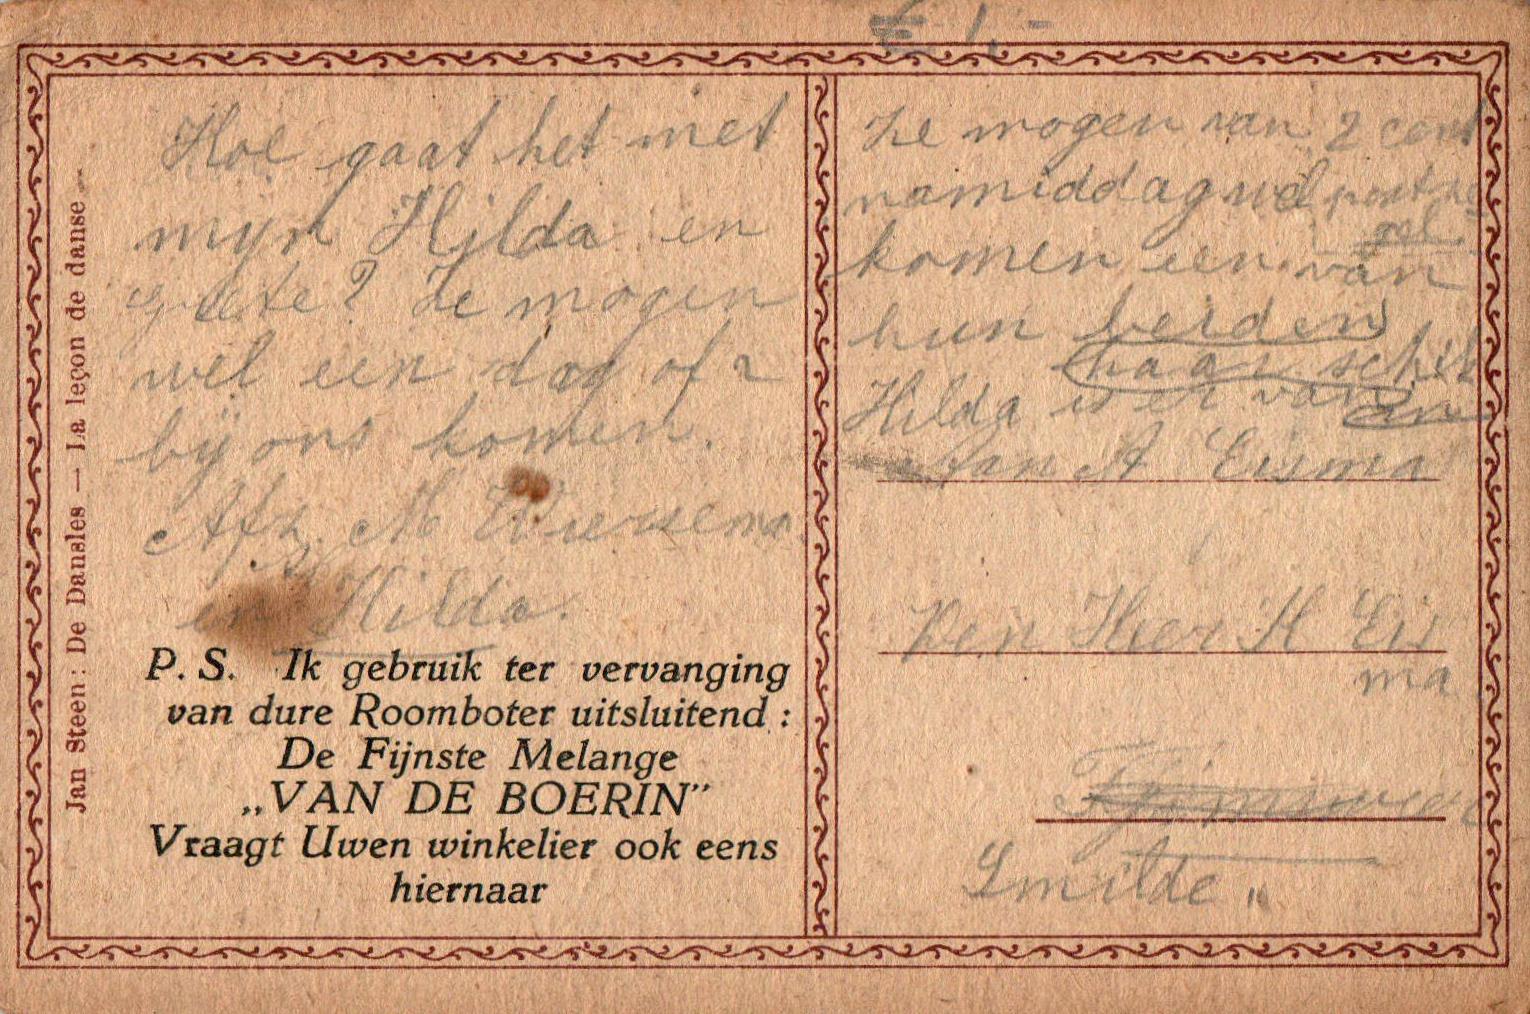 € 1,-
Jan Steen: De Dansles — La leçon de danse
Hoe gaat het met
mijn Hilda en
Griete? Ze mogen
wel een dag of 2
bij ons komen.
Afz. M Wiersema
en Hilda.
P. S. Ik gebruik ter vervanging
van dure Roomboter uitsluitend :
De Fijnste Melange
„VAN DE BOERIN”
Vraagt Uwen winkelier ook eens
hiernaar
Ze mogen van 2 cent
namiddag wel postze
gel
komen een van
hun beiden
haar schik
Hilda is er van
an
Jan A Eisma
Den Heer H Eis
ma
Smilde „